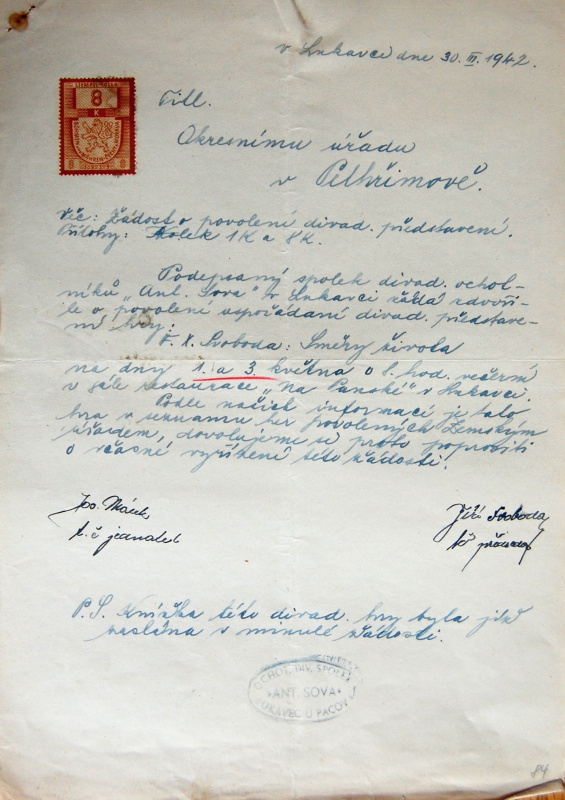 v Lukavci dne 30. III. 1942.
8
K
BÖHMEN u. MÄHREN
ČECHY a MORAVA
8 8
Titl.
Okresnímu úřadu
v Pelhřimově.
Věc: Žádost o povolení divad. představení.
Přílohy: Kolek 1K a 8K.
Podepsaný spolek divad. ochot-
níků „Ant. Sova" v Lukavci žádá zdvoři-
le o povolení uspořádání divad. představe-
ní hry:
F. X. Svoboda: Směry života
na dny 1. a 3. května o 8. hod. večerní
v sále restaurace „Na Panské" v Lukavci.
Podle našich informací je tato
hra v seznamu her povolených Zemským
úřadem, dovolujeme si proto poprositi
o včasné vyřízení této žádosti.
Jos.
t. č. jednatel
Jiří Svoboda
tč předseda
P. S. Knížka této divad. hry byla již
zaslána s minulé žádosti.
OCHOT. DIV. SPOLEK
"ANT. SOVA"
LUKAVEC U PACOVA
84